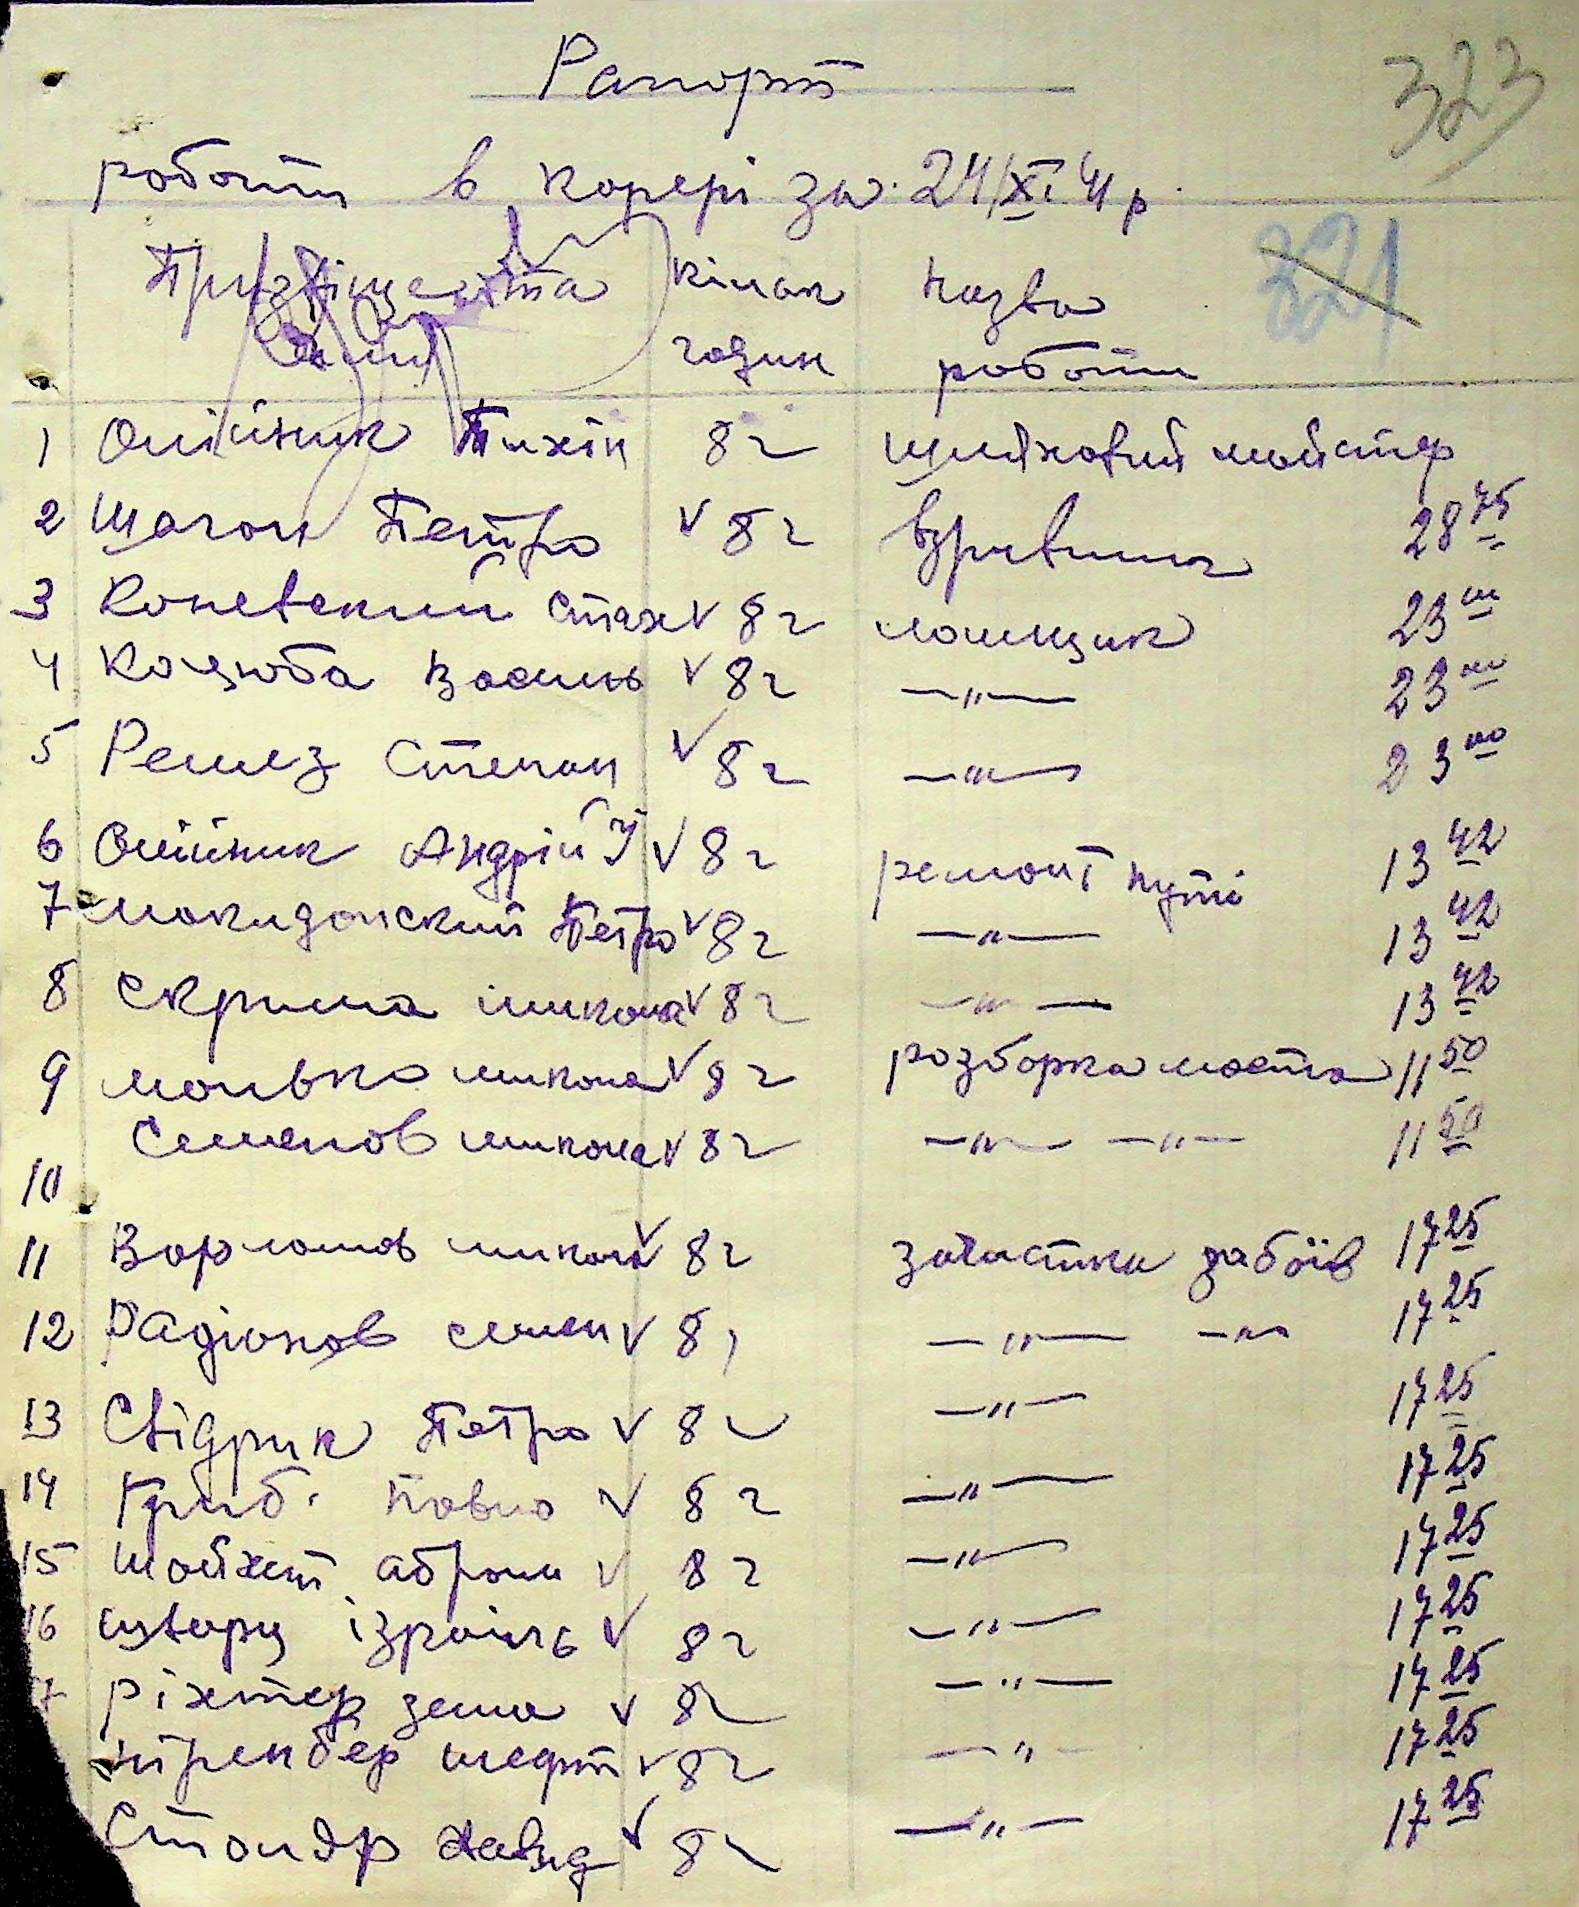 Рапорт
323
роботи в корері за 24/XI 41 р.
Прізвіще та кільк Назва
321
імя годин роботи
1 Олійник Тихін 8 г шляховий майстер
2 Шагон Петро √ 8 г взривник 28 75
3 Коневский Стах √ 8 г ломщик 23 00
4 Коцюба Василь √ 8 г —"— 23 00
5 Ремез Степан √ 8 г —"— 23 00
6 Олійник Андрій У √ 8 г ремонт путі 13 42
7 Макидонский Петро √ 8 г —"— 13 42
8 Скрипа микола √ 8 г —"— 13 42
9 микола √ 8 г розборка моста 11 50
Семенов микола √ 8 г —"— —"— 11 50
10
11 Варламов микола √ 8 г зачистка забоїв 17 25
12 Радіонов семен √ 8 г —"— —"— 17 25
13 Свідрик Петро √ 8 г —"— 17 25
14 Гриб. Павло √ 8 г —"— 17 25
15 шойхет абрам √ 8 г —"— 17 25
16 шварц ізраїль √ 8 г —"— 17 25
7 ріхтер зема √ 8 г —"— 17 25
√ 8 г —"— 17 25
Давид √ 8 г —"— 17 25